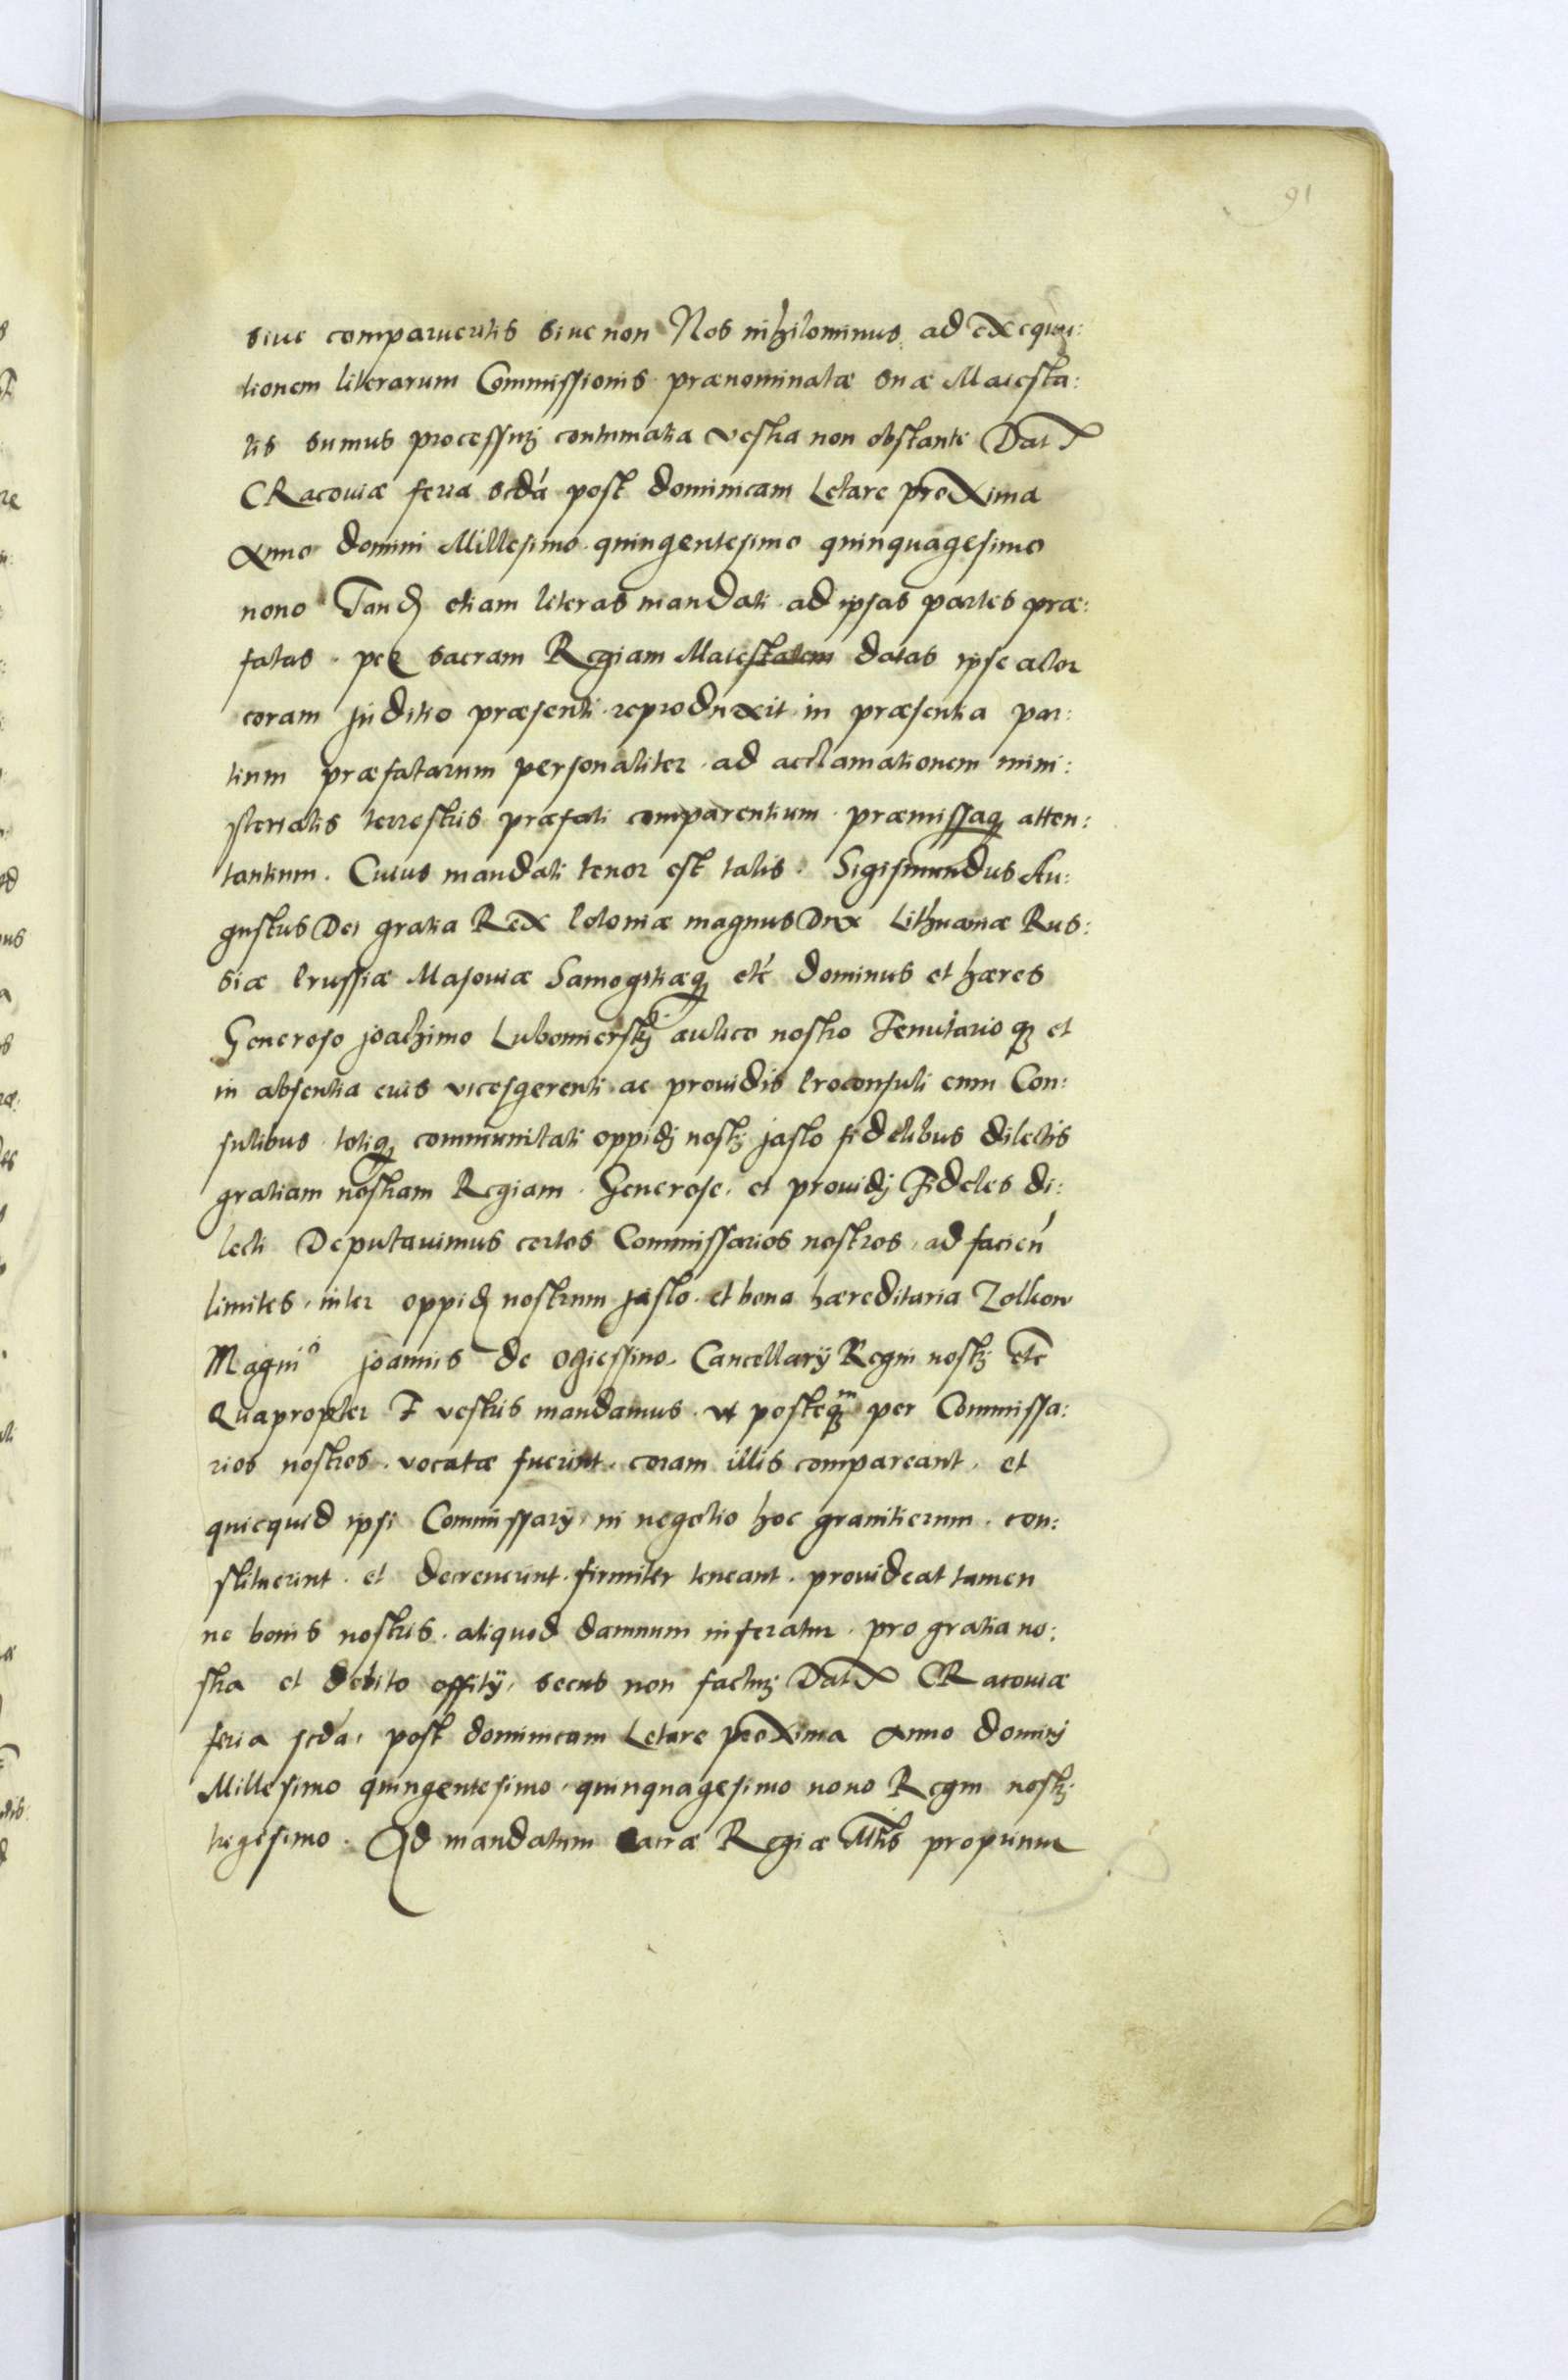 91
siue comparueritis siue non Nos nihilominus ad exequu:
tionem literarum Commissionis prænominatæ suæ Maiesta:
tis sumus processuri contumatia vestra non obstante Dat
CRacouiæ feria scda post dominicam Letare proxima
Anno domini Millesimo quingentesimo quinquagesimo
nono Tand etiam literas mandati ad ipsas partes præ:
fatas per sacram Regiam Maiestatem datas ipse actor
coram juditio præsenti reproduxit in præsentia par:
tium præfatarum personaliter ad acclamationem mini:
sterialis terrestris præfati comparentium præmissaq atten:
tantium. Cuius mandati tenor est talis. Sigismundus Au:
gustus Dei gratia Rex Poloniæ magnus Dux Lithuaniæ Rus:
siæ Prussiæ Masouiæ Samogitiæq etc dominus et hæres
Generoso joachimo Lubomiersky aulico nostro Tenutario q et
in absentia eius vicesgerenti ac prouidis Proconsuli cum Con:
sulibus totiq communitati oppidi nostri jaslo fidelibus dilectis
gratiam nostram Regiam. Generose et prouidi Fideles di:
lecti Deputauimus certos Commissarios nostros ad facien
limites inter oppid nostrum jaslo et bona hæreditaria Zolkow
Magnio joannis de Ogiessino Cancellarij Regni nostri etc
Quapropter F vestris mandamus vt posteqm per Commissa:
rios nostros vocatæ fuerint coram illis compareant et
quicquid ipsi Commissarij in negotio hoc granitierum con:
stituerint et decreuerint firmiter teneant prouideat tamen
ne bonis nostris aliquod damnum inferatur pro gratia no:
stra et debito offitij secus non facturi Dat CRacouiæ
feria scda post dominicam Letare proxima Anno domini
Millesimo quingentesimo quinquagesimo nono Regni nostri
trigesimo. Ad mandatum sacræ Regiæ Mtis proprium